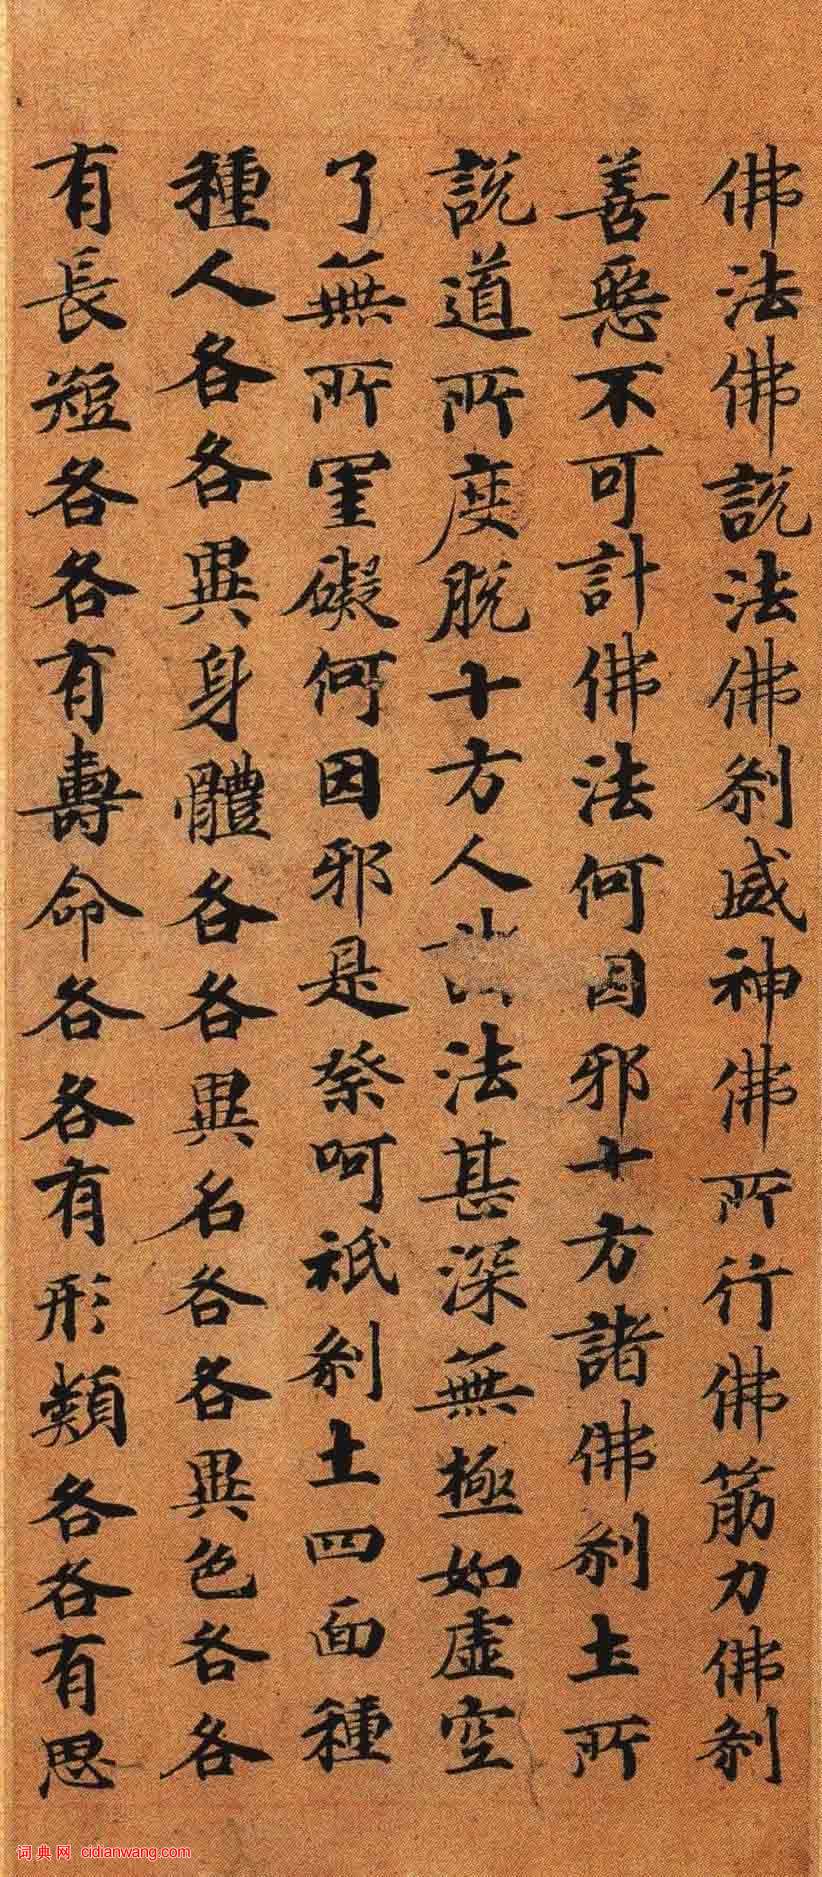 佛法佛說法佛刹威神佛所行佛筋力佛刹
善惡不可計佛法何因邪十方諸佛刹土所
說道所度脫十方人法甚深無極如虛空
了無所罣礙何因邪是祭呵祇刹土四面種
種人各各異身體各各異名各各異色各各
有長短各各有壽命各各有形類各各有思
词典网 cidianwang.com